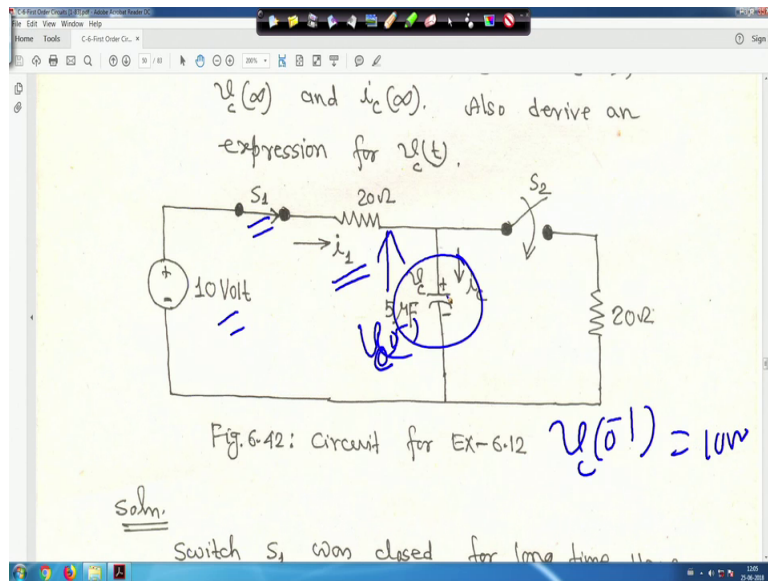 C-6-First Order Circuits (1-83).pdf - Adobe Acrobat Reader DC
File Edit View Window Help
Home Tools C-6-First Order Cir... × Sign
50 / 83 200%
v_c(∞) and i_c(∞). Also derive an
expression for v_c(t).
S1 20Ω S2
i_1
10 Volt
v_c + i_c
5 μF -
20Ω
v_c(0-)
Fig. 6.42: Circuit for EX-6.12
v_c(0-) = 10V
Soln.
Switch S1 was closed for long time
12:05
25-06-2018